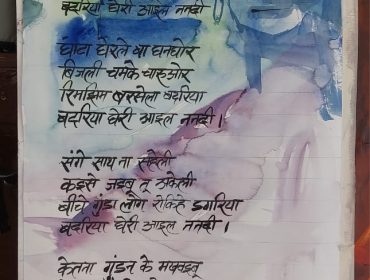 बदरिया घेरी आइल ननदी
घाटा घेरले बा घनघोर
बिजली चमके चारुओर
रिमझिम बरसेला बदरिया
बदरिया घेरी आइल ननदी।
संगे साथ ना सहेली
कइसे जइबू तू अकेली
बीचे गुंडा लोग रोकिहे डगरिया
बदरिया घेरी आइल ननदी।
केतना गुंडन के